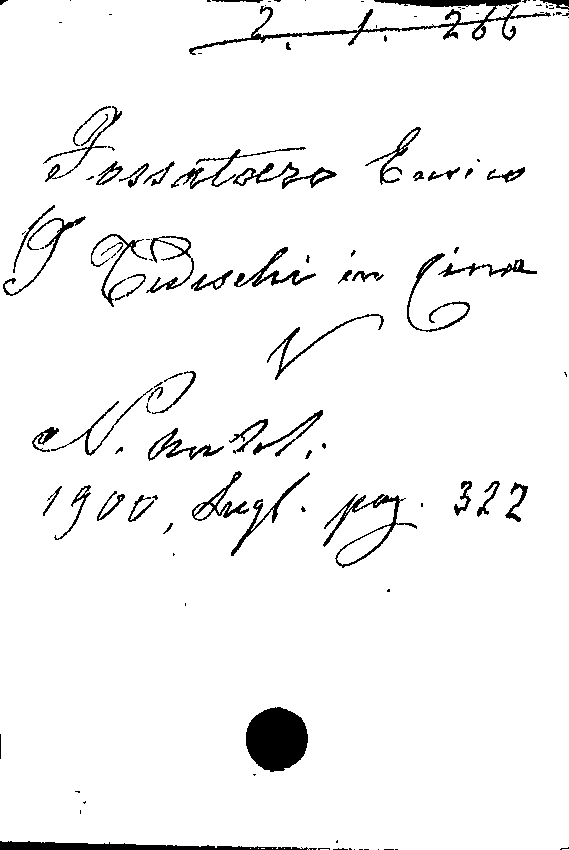 2. 1. 266
Fossataro Enrico
I Tedeschi in Cina
V
N. Antol.
1900, Lugl. pag. 322